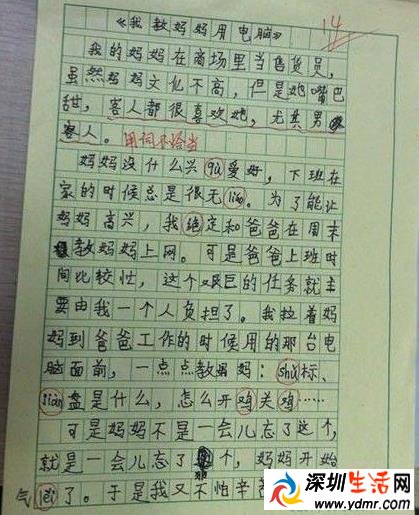 《我教妈妈用电脑》
14
我的妈妈在商场里当售货员，
虽然妈妈文化不高，但是她嘴巴
甜，客人都很喜欢她，尤其男
客人。用词不恰当
妈妈没什么兴qù爱好，下班在
家的时候总是很无liáo。为了能让
妈妈高兴，我绝定和爸爸在周末
教妈妈上网。可是爸爸上班时
间比较忙，这个艰巨的任务就主
要由我一个人负担了。我拉着妈
妈到爸爸工作的时候用的那台电
脑面前，一点点教妈妈：shǔ标、
jiàn盘是什么，怎么开鸡关鸡……
可是妈妈不是一会儿忘了这个，
就是一会儿忘了那个，妈妈开始
气lěi了。于是我又不怕辛苦
深圳生活网
www.ydmr.com